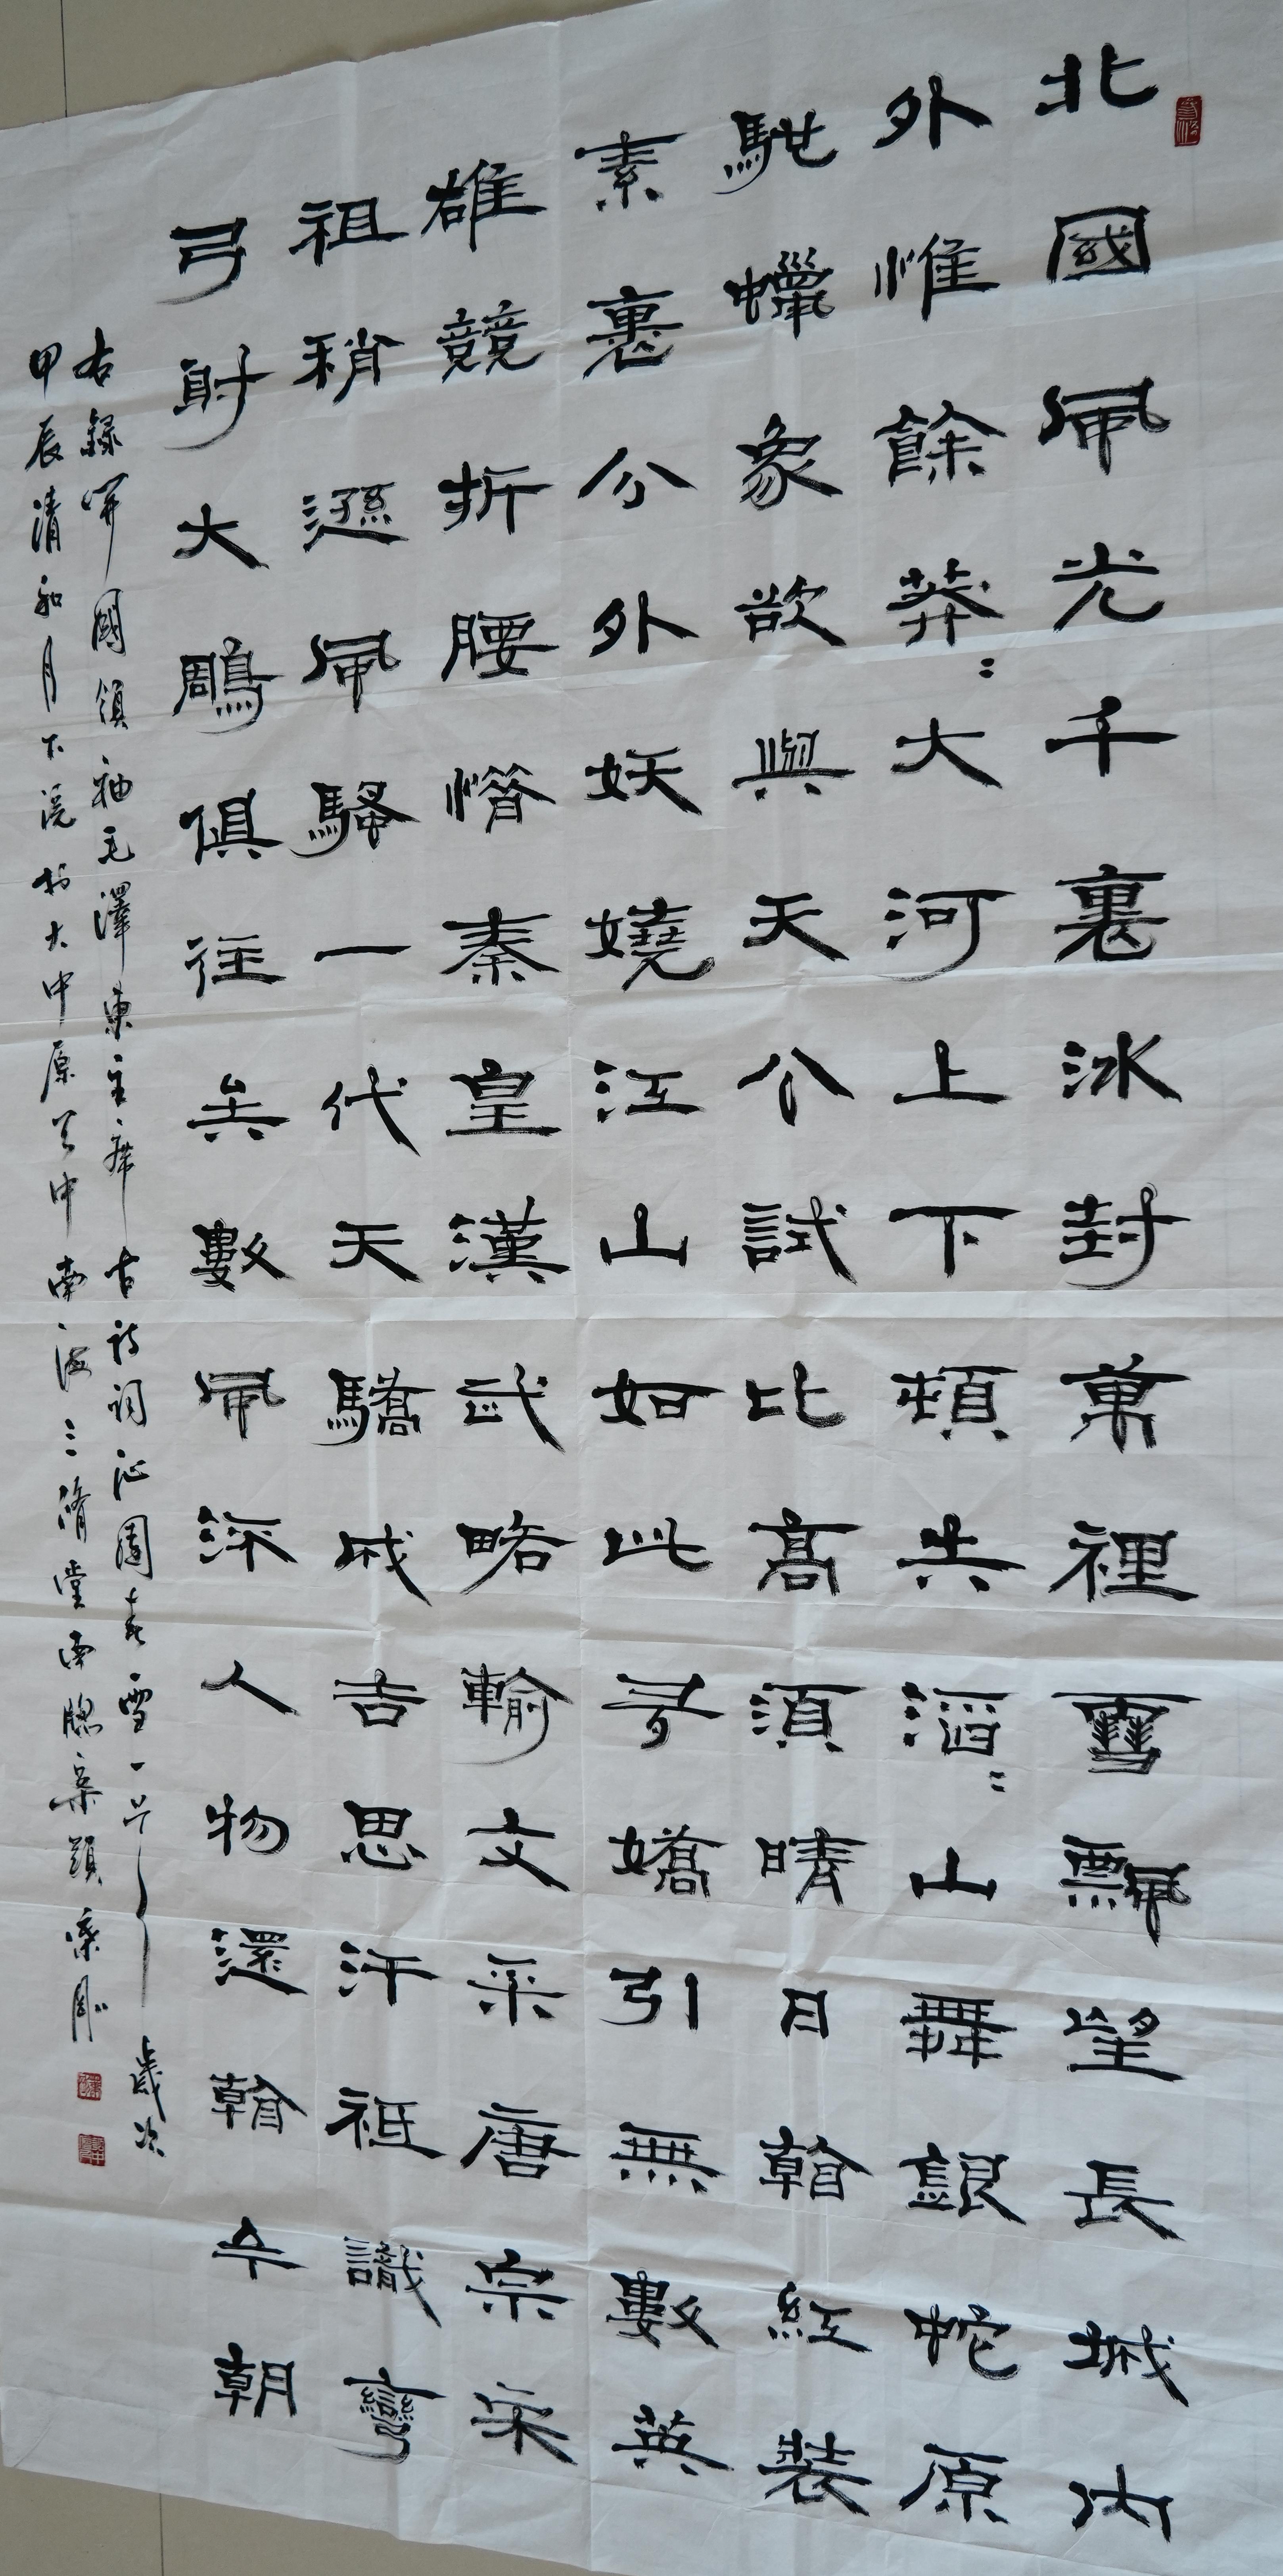 北國風光千裏冰封萬裡雪飄望長城內
外惟餘莽〻大河上下頓失滔〻山舞銀蛇原
馳蠟象欲與天公試比高須晴日看紅裝
素裹分外妖嬈江山如此多嬌引無數英
雄競折腰惜秦皇漢武略輸文采唐宗宋
祖稍遜風騷一代天驕成吉思汗祗識彎
弓射大鵰俱往矣數風流人物還看今朝
右錄開國領袖毛澤東主席古詩詞沁園春雪一首歲次
甲辰清和月下浣於大中原之中南海三脩堂南牕案頭